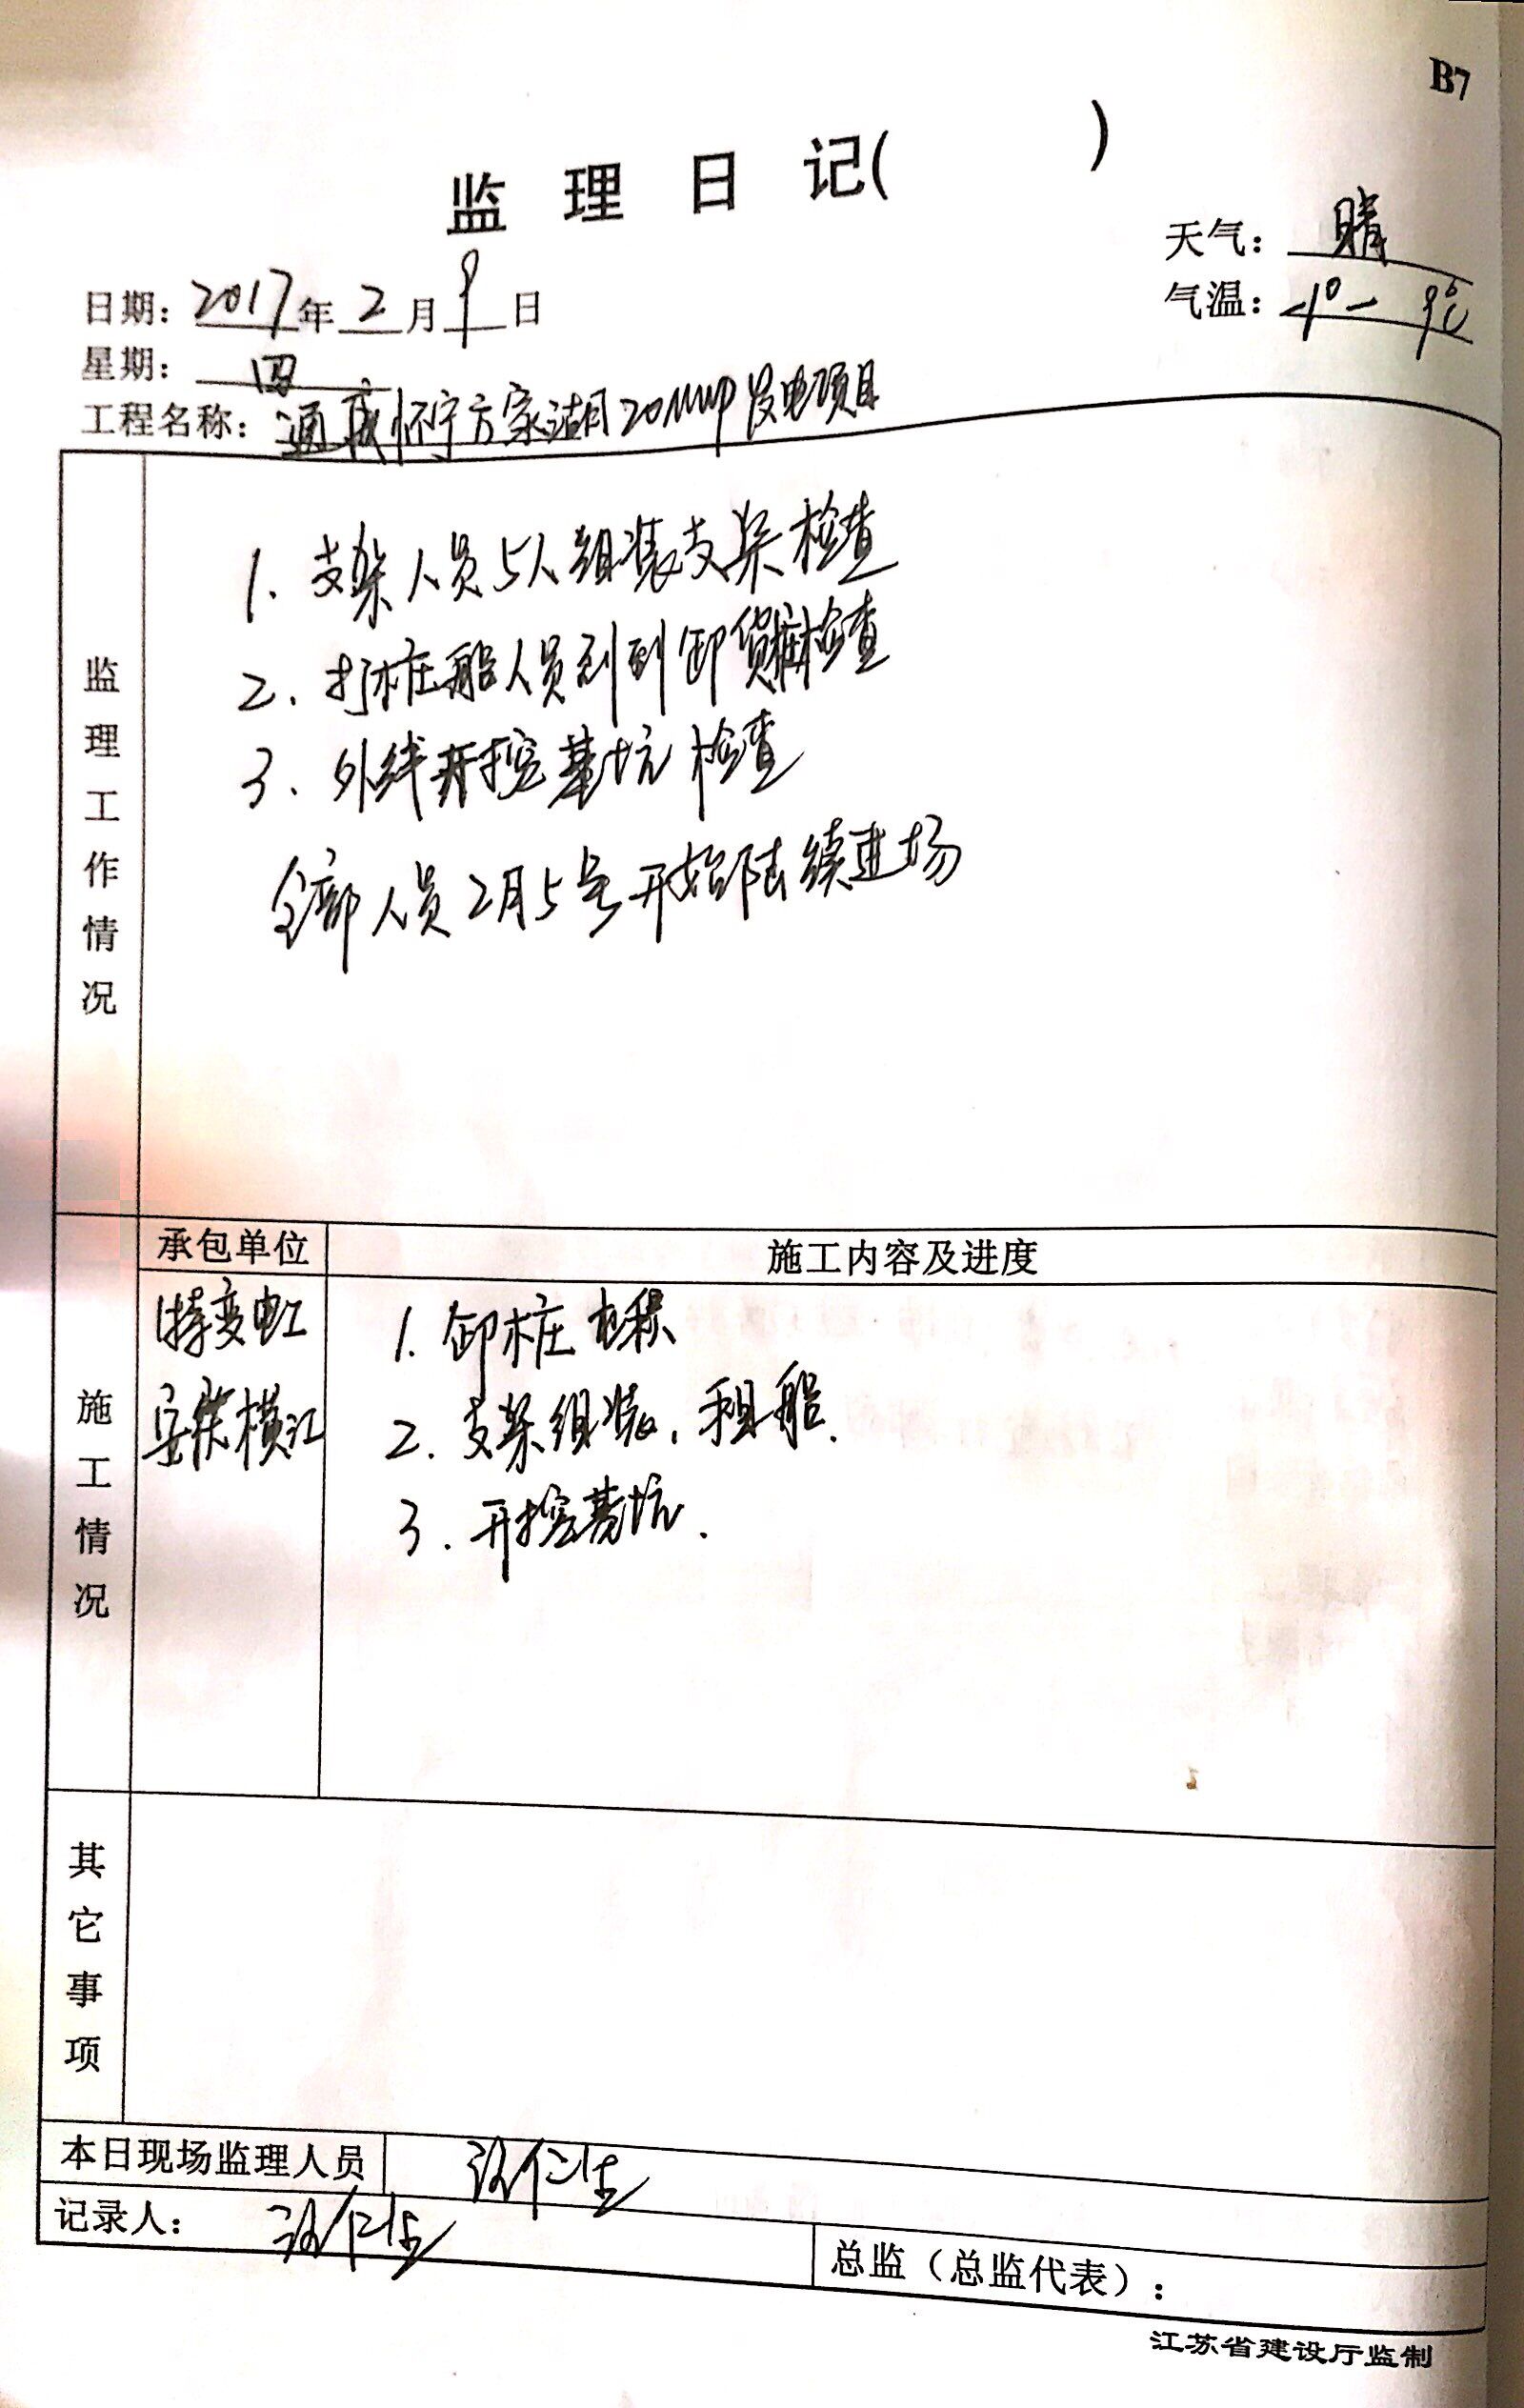 B7
监 理 日 记( )
天气: 晴
气温: -1°- 9℃
日期: 2017年2月9日
星期: 四
工程名称: 通威怀宁方家湖20MWP发电项目
监理工作情况
1. 支架人员5人组装支架检查
2. 打桩船人员到 卸货 检查
3. 外线开挖基坑检查
全部人员2月5号开始陆续进场
施工情况
承包单位 施工内容及进度
特变电工
安徽横江
1. 卸桩 堆积
2. 支架组装、租船.
3. 开挖基坑.
其它事项
本日现场监理人员
记录人:
总监（总监代表）:
江苏省建设厅监制